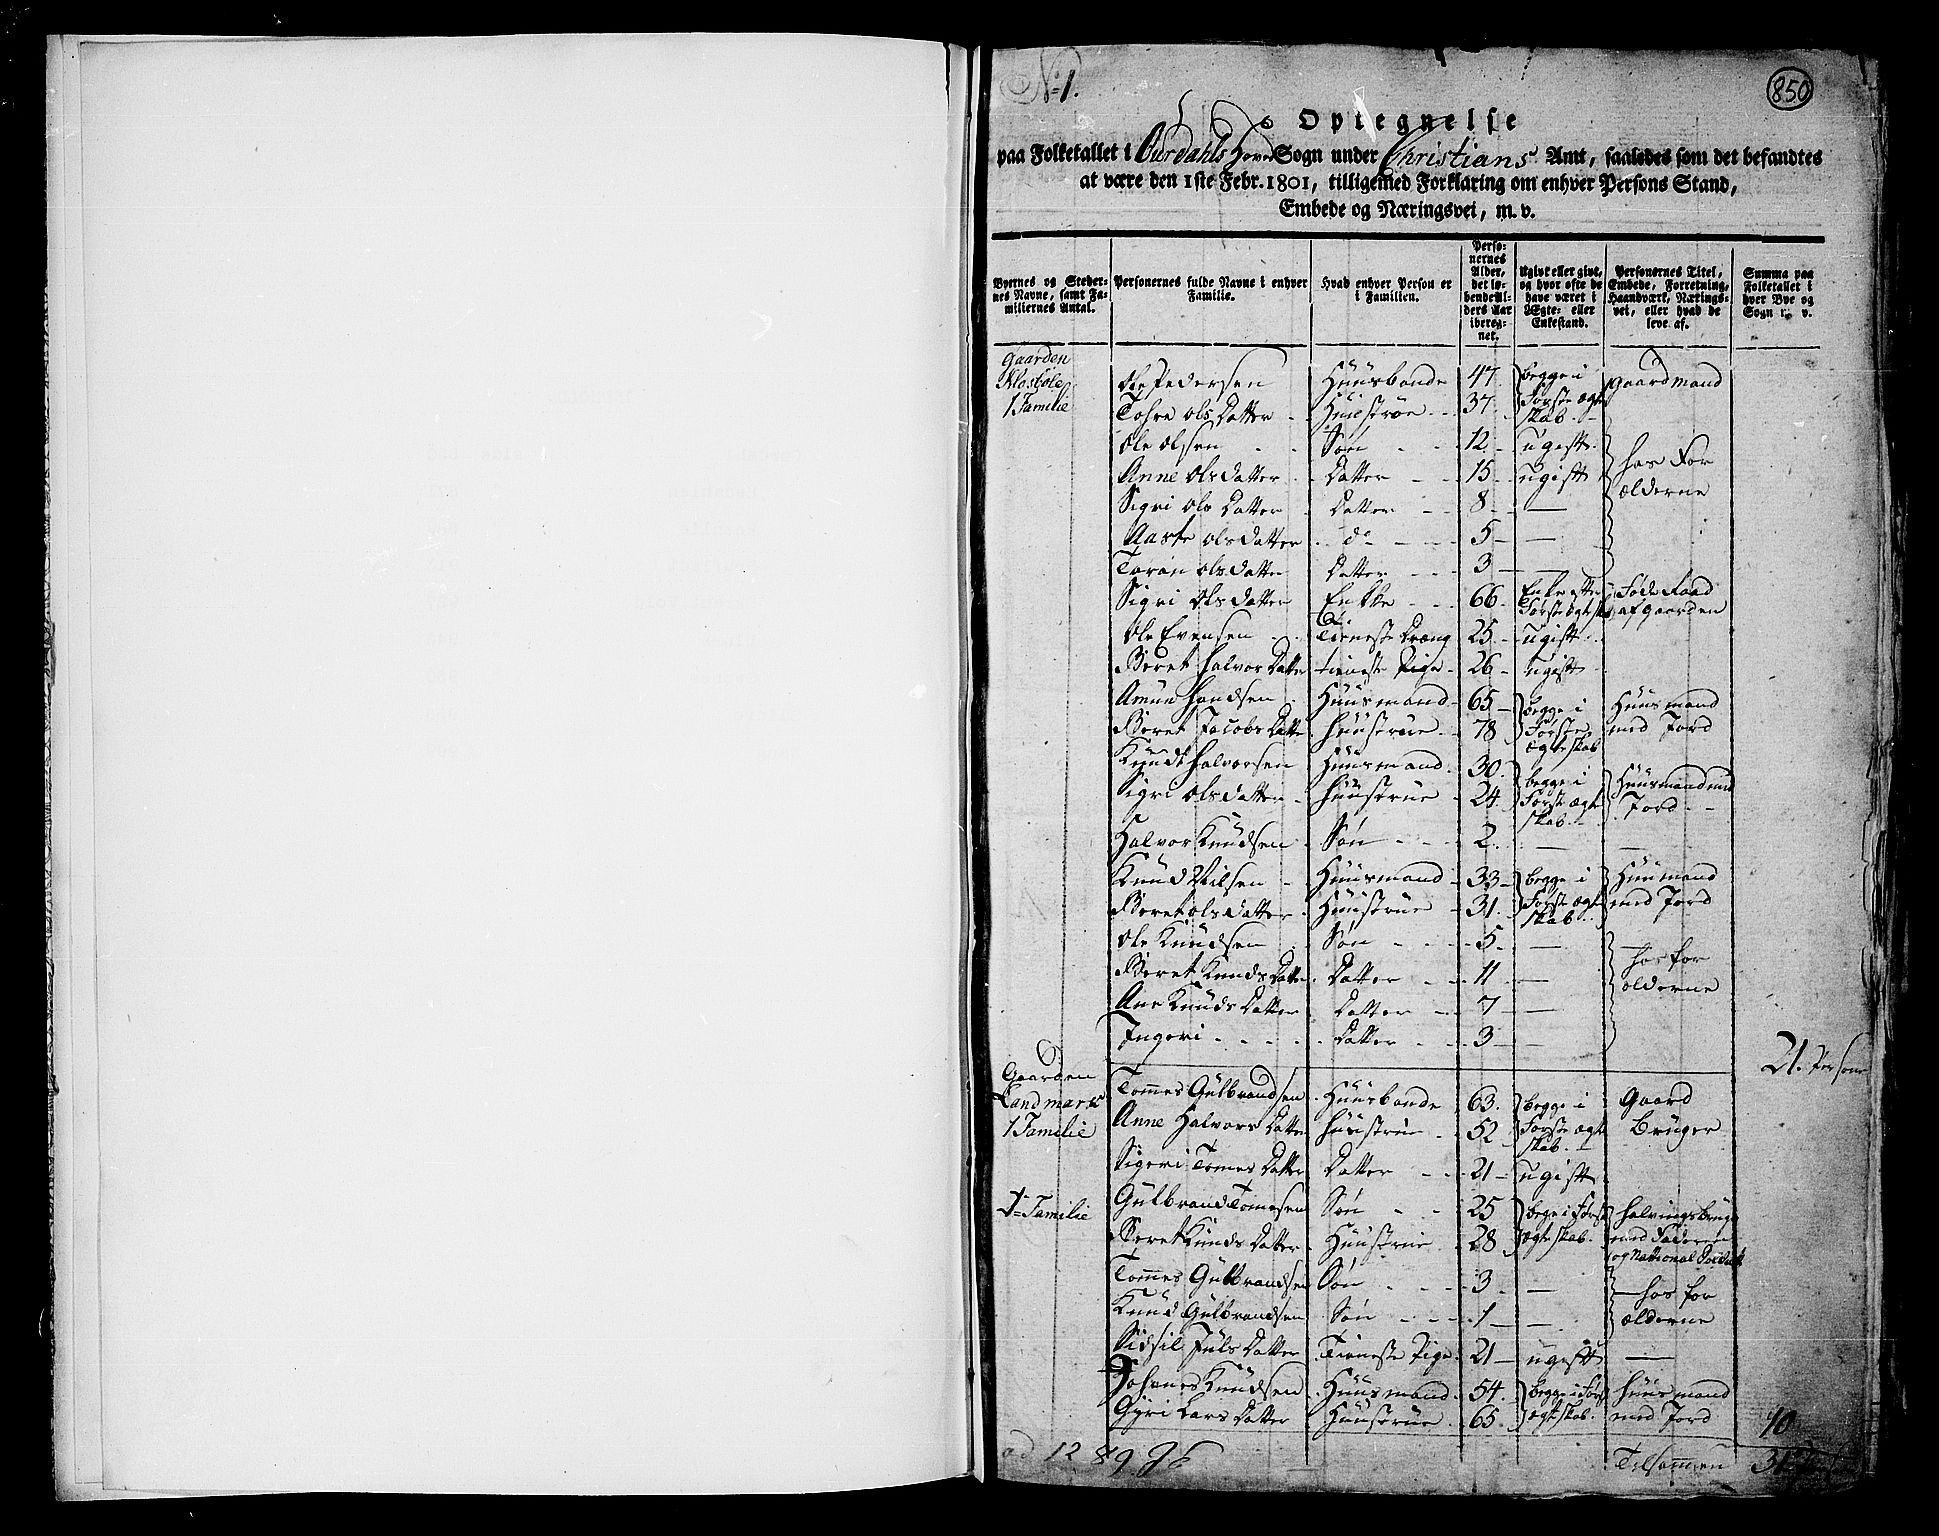 No 1.
850
Optegnelse
paa Folketallet i Ourdahls Hoved Sogn under Christians Amt, saaledes som det befandtes
at være den 1ste Febr. 1801, tilligemed Forklaring om enhver Persons Stand,
Embede og Næringsvei, m. v.
Byernes og Stedernes Navne, samt Familiernes Antal. Personernes fulde Navne i enhver Familie. Hvad enhver Person er i Familien. Personernes Alder, det løbende Alders Aar iberegnet. Ugivt eller givt, og hvor ofte de have været i Ægte- eller Enkestand. Personernes Titel, Embede, Forretning, Haandværk, Næringsvei, eller hvad de leve af. Summa paa Folketallet i hver Bye og Sogn ec. v.
Gaarden Klosbøle 1 Familie
Ole Pedersen Huusbonde 47 begge i Første Ægteskab Gaardmand
Tohre Ols Datter Huustrøe 37
Ole Olsen Søn 12 ugift hos Forælderne
Anne Olsdatter Datter 15 ugift
Sigri Ols Datter Datter 8 —
Aaste Olsdatter do 5 —
Toron Olsdatter Datter 3 —
Sigri Olsdatter Enkke 66 Enke efter Første Ægtesk. Føde Raad af gaarden
Ole Evensen Tieneste Dræng 25 ugift
Beret Halvors Datter tieneste Pige 26 ugift
Amun Handsen Huusmand 65 begge i Første Ægteskab Huusmand med Jord
Beret Jacobs Datter Huustrue 78
Knudt Halvorsen Huusmand 30 begge i Første Ægteskab Huusmand med Jord
Sigri Olsdatter Huustrue 24
Halvor Knudsen Søn 2 —
Knud Nilsen Huusmand 33 begge i Første Ægteskab Huusmand med Jord
Beret Olsdatter Huustrue 31
Ole Knudsen Søn 5 — hos forælderne
Beret Knuds Datter Datter 11 —
Ane Knuds Datter Datter 7 —
Ingeri Datter 3 —
21. Persone
Gaarden Landmark 1 Familie
Tommes Gulbrandsen Huusbonde 63 begge i Første Ægteskab Gaard Bruger
Anne Halvors Datter Huustrue 52
Sigeri Tomes Datter Datter 21 ugift
1 Familie
Gulbrand Tomesen Søn 25 begge i Første Ægteskab halvingsbruge med Faderen og National Soldat
Beret Knuds Datter Huustrue 28
Tommes Gulbrandsen Søn 3 — hos forælderne
Knud Gulbrandsen Søn 1 —
Sidsil Juls Datter Tieneste Pige 21 ugift —
Johanes Knudsen Huusmand 54 begge i Første Ægteskab Huusmand med Jord
Gyri Lars Datter Huustrue 65
10
Tilsammen 31